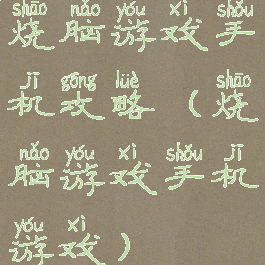 shāo nǎo yóu xì shǒu
烧脑游戏手
jī gōng lüè shāo
机攻略（烧
nǎo yóu xì shǒu jī
脑游戏手机
yóu xì
游戏）